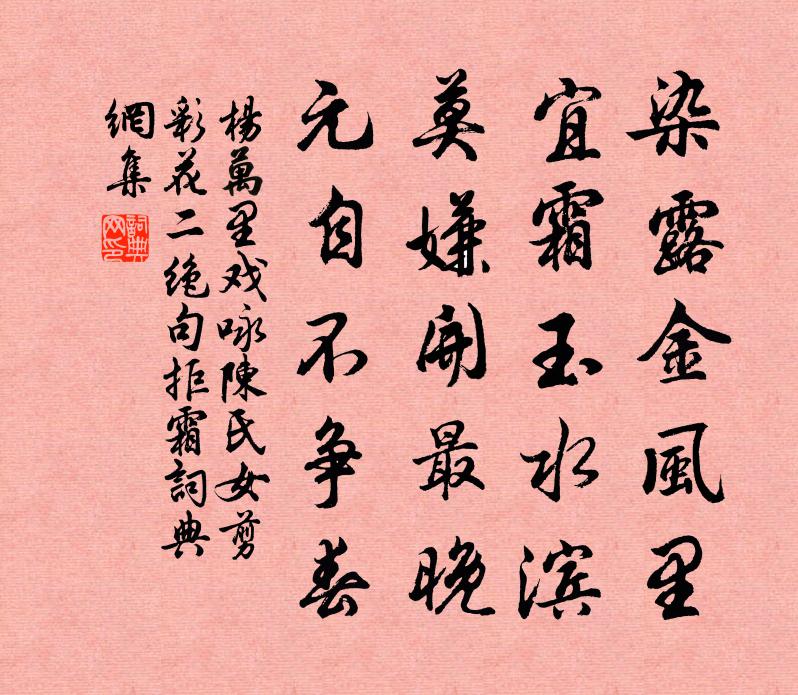 染露金風里
宜霜玉水滨
莫嫌開最晚
元自不争春
楊萬里戏咏陳氏女剪
彩花二绝句拒霜詞典
網集
詞典
网印